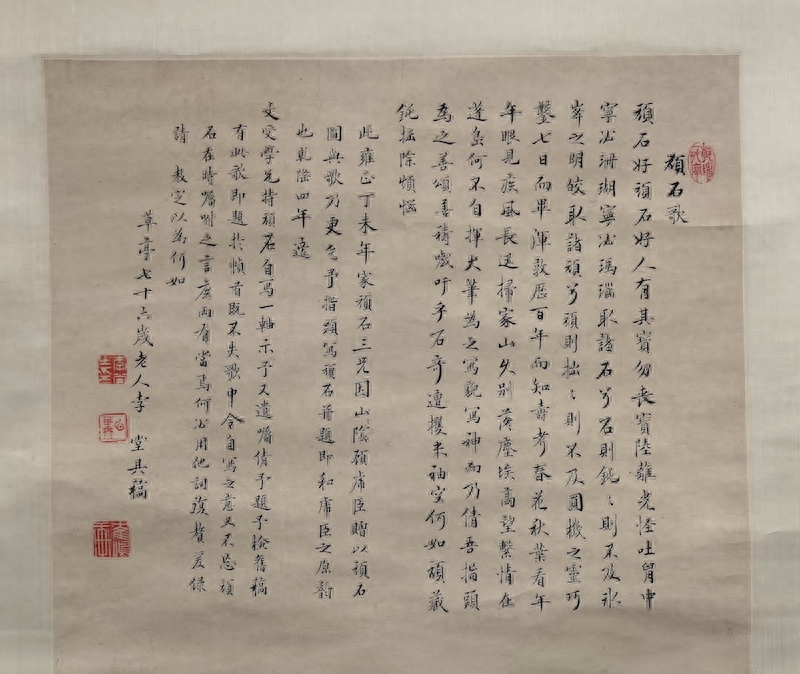 頑石歌
頑石好頑石好人有其寶勿喪寶陸離光怪吐胷中
寧必珊瑚寧必瑪瑙取諸石兮石則鈍〻則不及氷
峯之明皎取諸頑兮頑則拙〻則不及圓機之靈巧
鑿七日而畢渾敦歷百年而知壽考春花秋葉看年
年眼見疾風長迅掃家山久別落塵埃高望繫情在
蓬島何不自揮大筆為之寫貌寫神而乃倩吾指頭
為之善頌善禱噫吁乎石奇遭攫來袖空何如頑藏
鈍拙除煩惱
此雍正丁未年家頑石三兄因山陰顧庸臣贈以頑石
圖與歌乃更乞予指頭寫頑石并題即和庸臣之原韵
也乾隆四年遶
文受學兄持頑石自寫一軸示予又遺囑倩予題予檢舊稿
有此歌即題於幀首既不失歌中令自寫之意又不忘頑
石在時囑咐之言庶兩有當焉何必用他詞後贅爰錄
請 教定以為何如
草亭七十六歲老人李 堂具稿